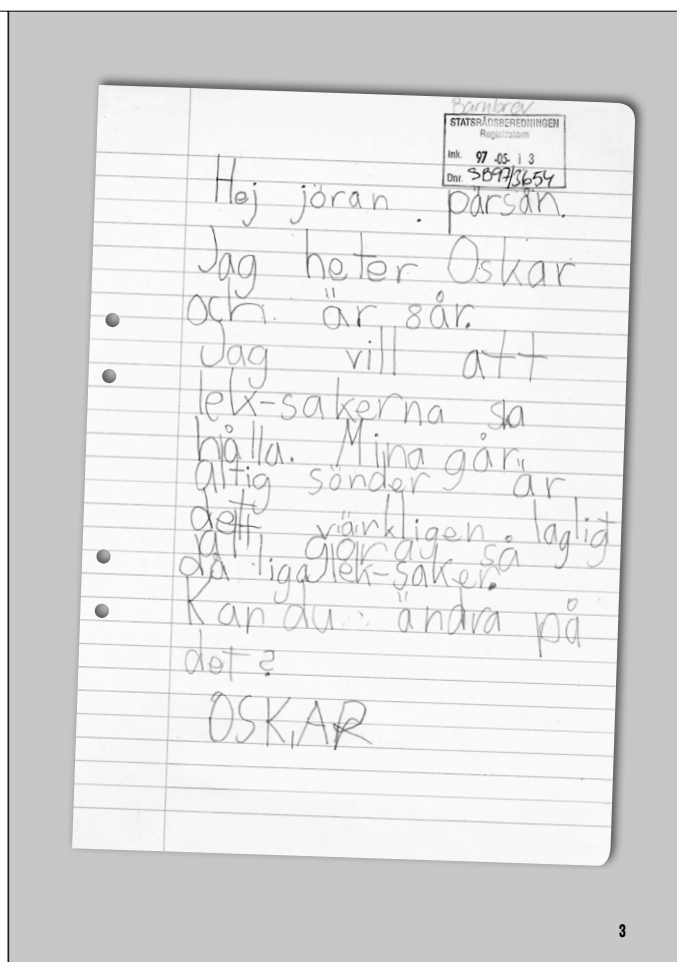 Barnbrev
STATSRÅDSBEREDNINGEN
Registratorn
Ink. 97 -05- 1 3
Dnr. SB97/3654
Hej jöran . pärsån.
Jag heter Oskar
och är 8år.
Jag vill att
lelx-sakerna ska
hålla. Mina går
altig sönder är
dett värkligen lagligt
att göra så
då liga lek-saker.
Kan du ändra på
det?
OSKAR
3